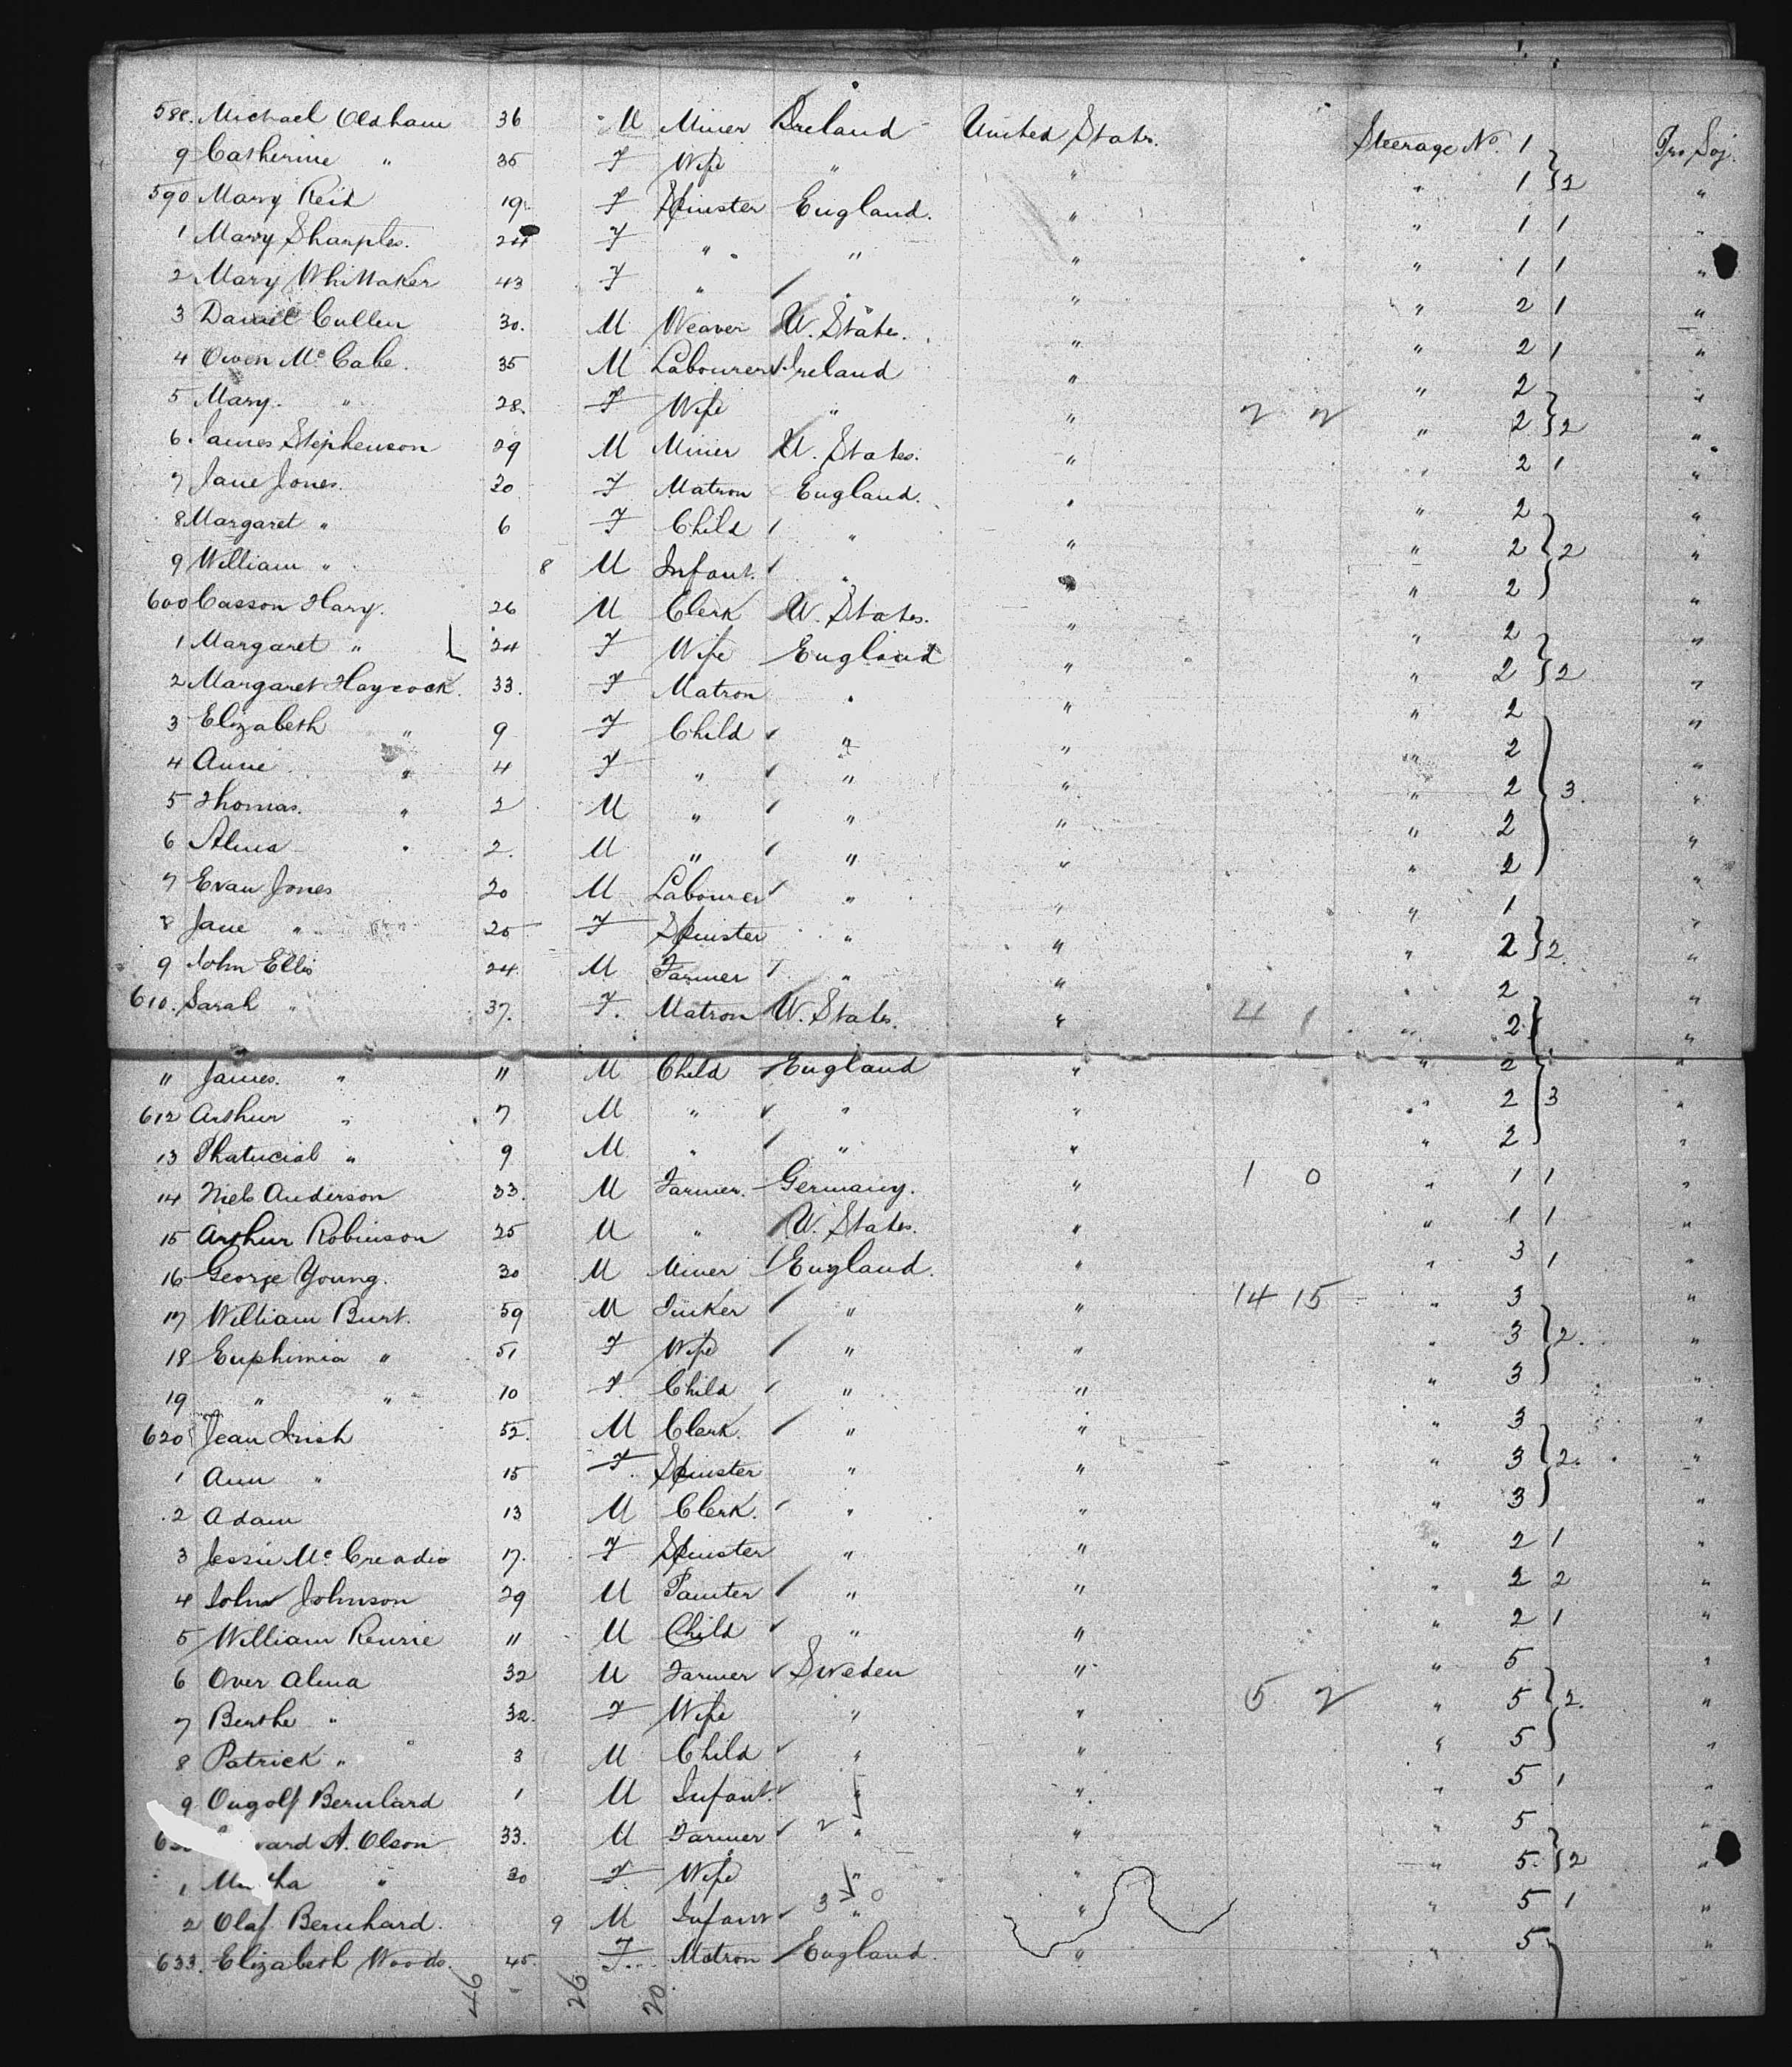 588. Michael Oldham 36 M Miner Ireland United States. Steerage No. 1 Pro Soj.
9 Catherine " 35 F Wife " " " 1 } 2 "
590 Mary Reid 19. F Spinster England. " " 1 1 "
1 Mary Sharples. 24 F " " " " 1 1 "
2 Mary Whittaker 43 F " " " " 2 1 "
3 Daniel Cullen 30. M Weaver U. States. " " 2 1 "
4 Owen Mc Cabe. 35 M Labourer Ireland " " 2 "
5 Mary. " 28. F Wife " " 2 2 " 2 } 2 "
6. James Stephenson 29 M Miner U. States. " " 2 1 "
7 Jane Jones. 30 F Matron England. " " 2 "
8 Margaret " 6 F Child " " " 2 } 2 "
9 William " 8 M Infant. " " " 2 "
600 Casson Hary. 26 M Clerk U. States. " " 2 "
1 Margaret " 24 F Wife England " " 2 } 2 "
2 Margaret Haycock. 33. F Matron " " " 2 "
3 Elizabeth " 9 F Child " " " 2 "
4 Annie " 4 F " " " " 2 } 3. "
5 Thomas. " 2 M " " " " 2 "
6 Alma " 2. M " " " " 2 "
7 Evan Jones 20 M Labourer " " " 1 "
8 Jane " 25 F Spinster " " " 2 } 2. "
9 John Ellis 24. M Farmer " " " 2 "
610. Sarah " 37. F. Matron U. States. " 4 1 " 2 "
11 James. " 11 M Child England " " 2 "
612 Arthur " 7 M " " " " 2 } 3 "
13 " 9 M " " " " 2 "
14 Niels Anderson 33. M Farmer. Germany. " 1 0 " 1 1 "
15 Arthur Robinson 25 M " U. States. " " 1 1 "
16 George Young. 30 M Miner England. " " 3 1 "
17 William Burt. 59 M " " 14 15 " 3 "
18 Euphimia " 51 F Wife " " " 3 } 2. "
19 " " 10 F. Child " " " 3 "
620 Jean Irish 52. M Clerk. " " " 3 "
1 Ann " 15 F. Spinster " " " 3 } 2. "
2 Adam 13 M Clerk. " " " 3 "
3 Jessie Mc Creadie 17. F Spinster " " " 2 1 "
4 John Johnson 29 M Painter " " " 2 2 "
5 William Rennie 11 M Child " " " 2 1 "
6 Over Alma 32 M Farmer Sweden " " 5 "
7 Berthe " 32. F Wife " " 5 2 " 5 } 2. "
8 Patrick " 3 M Child " " " 5 "
9 Ongolf Bernhard 1 M Infant. " " " 5 1 "
A. Olson 33. M Farmer 2 " " " 5 "
1 " 30 F Wife " " " 5. } 2 "
2 Olaf Bernhard. 9 M Infant 3 0 " " " 5 1 "
633. Elizabeth Woods. 45. F. Matron England. " " 5 "
46 26 20